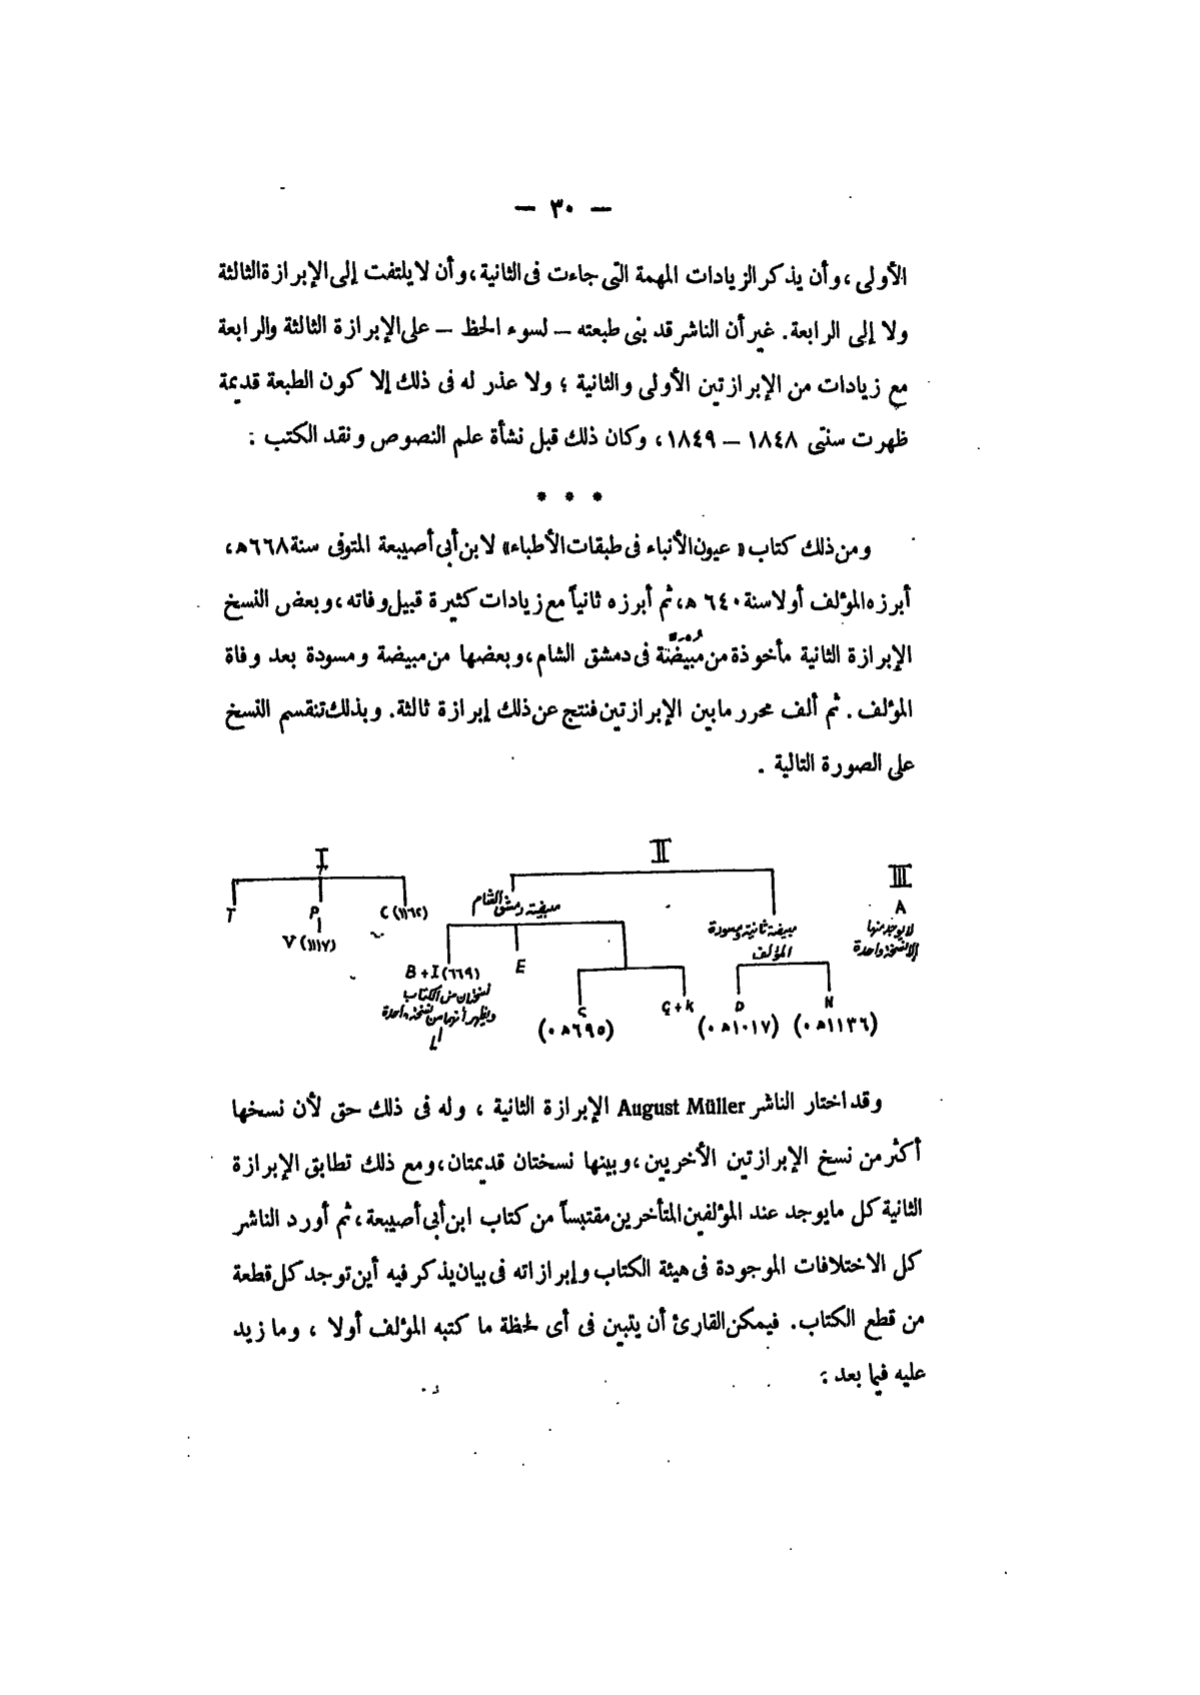 — ٣٠ —
الأولى ، وأن يذكر الزيادات المهمة التى جاءت فى الثانية ، وأن لا يلتفت إلى الإبرازة الثالثة
ولا إلى الرابعة . غير أن الناشر قد بنى طبعته — لسوء الحظ — على الإبرازة الثالثة والرابعة
مع زيادات من الإبرازتين الأولى والثانية ؛ ولا عذر له فى ذلك إلا كون الطبعة قديمة
ظهرت سنتى ١٨٤٨ — ١٨٤٩ ، وكان ذلك قبل نشأة علم النصوص ونقد الكتب :
* * *
ومن ذلك كتاب « عيون الأنباء فى طبقات الأطباء » لابن أبى أصيبعة المتوفى سنة ٦٦٨ هـ ،
أبرزه المؤلف أولا سنة ٦٤٠ هـ ، ثم أبرزه ثانياً مع زيادات كثيرة قبيل وفاته ، وبعض النسخ
الإبرازة الثانية مأخوذة من مُبيضَّة فى دمشق الشام ، وبعضها من مبيضة ومسودة بعد وفاة
المؤلف . ثم ألف محرر ما بين الإبرازتين فنتج عن ذلك إبرازة ثالثة . وبذلك تنقسم النسخ
على الصورة التالية .
I II III
T P C (١١٦٢)
V (١١١٧)
مبيضة دمشق الشام
B + I (٦٦٩) E
نسختان من الكتاب
ويظهر أنهما من نسخة واحدة
L
G + K
(٦٩٥ هـ .)
مبيضة ثانية ومسودة
المؤلف
D N
(١٠١٧ هـ .) (١١٣٦ هـ .)
A
لا يوجد منها
إلا نسخة واحدة
وقد اختار الناشر August Müller الإبرازة الثانية ، وله فى ذلك حق لأن نسخها
أكثر من نسخ الإبرازتين الأخريين ، وبينها نسختان قديمتان ، ومع ذلك تطابق الإبرازة
الثانية كل ما يوجد عند المؤلفين المتأخرين مقتبساً من كتاب ابن أبى أصيبعة ، ثم أورد الناشر
كل الاختلافات الموجودة فى هيئة الكتاب وإبرازاته فى بيان يذكر فيه أين توجد كل قطعة
من قطع الكتاب . فيمكن القارئ أن يتبين فى أى لحظة ما كتبه المؤلف أولا ، وما زيد
عليه فيما بعد :